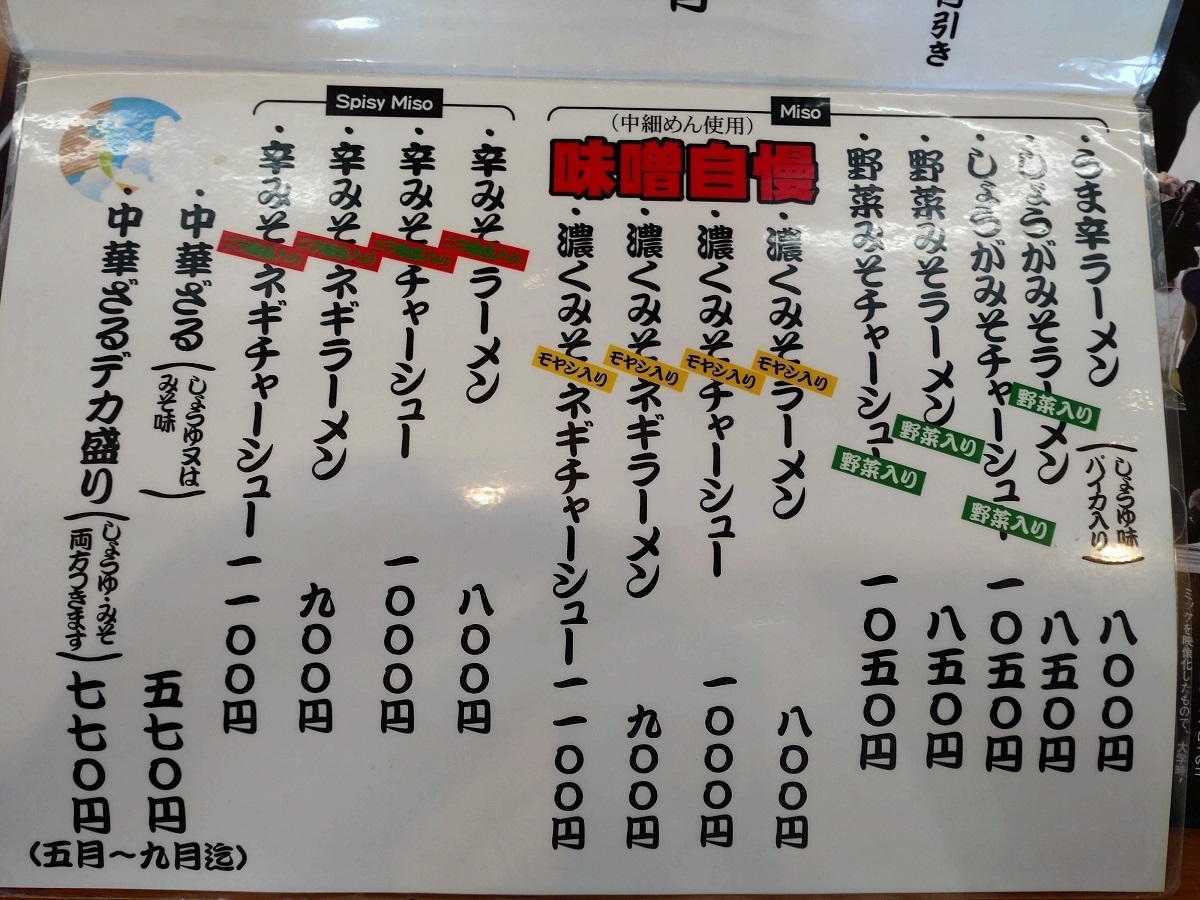 円引き
Miso
・うま辛ラーメン
（しょうゆ味
パイカ入り）
八〇〇円
・しょうがみそラーメン
野菜入り
八五〇円
・しょうがみそチャーシュー
野菜入り
一〇五〇円
・野菜みそラーメン
野菜入り
八五〇円
・野菜みそチャーシュー
野菜入り
一〇五〇円
（中細めん使用）
味噌自慢
・濃くみそラーメン
モヤシ入り
八〇〇円
・濃くみそチャーシュー
モヤシ入り
一〇〇〇円
・濃くみそネギラーメン
モヤシ入り
九〇〇円
・濃くみそネギチャーシュー
モヤシ入り
一一〇〇円
Spisy Miso
・辛みそラーメン
八〇〇円
・辛みそチャーシュー
一〇〇〇円
・辛みそネギラーメン
九〇〇円
・辛みそネギチャーシュー
一一〇〇円
・中華ざる
（しょうゆ又は
みそ味）
五七〇円
・中華ざるデカ盛り
（しょうゆ・みそ
両方つきます）
七七〇円
（五月～九月迄）
ミックを映像化したもので、大学